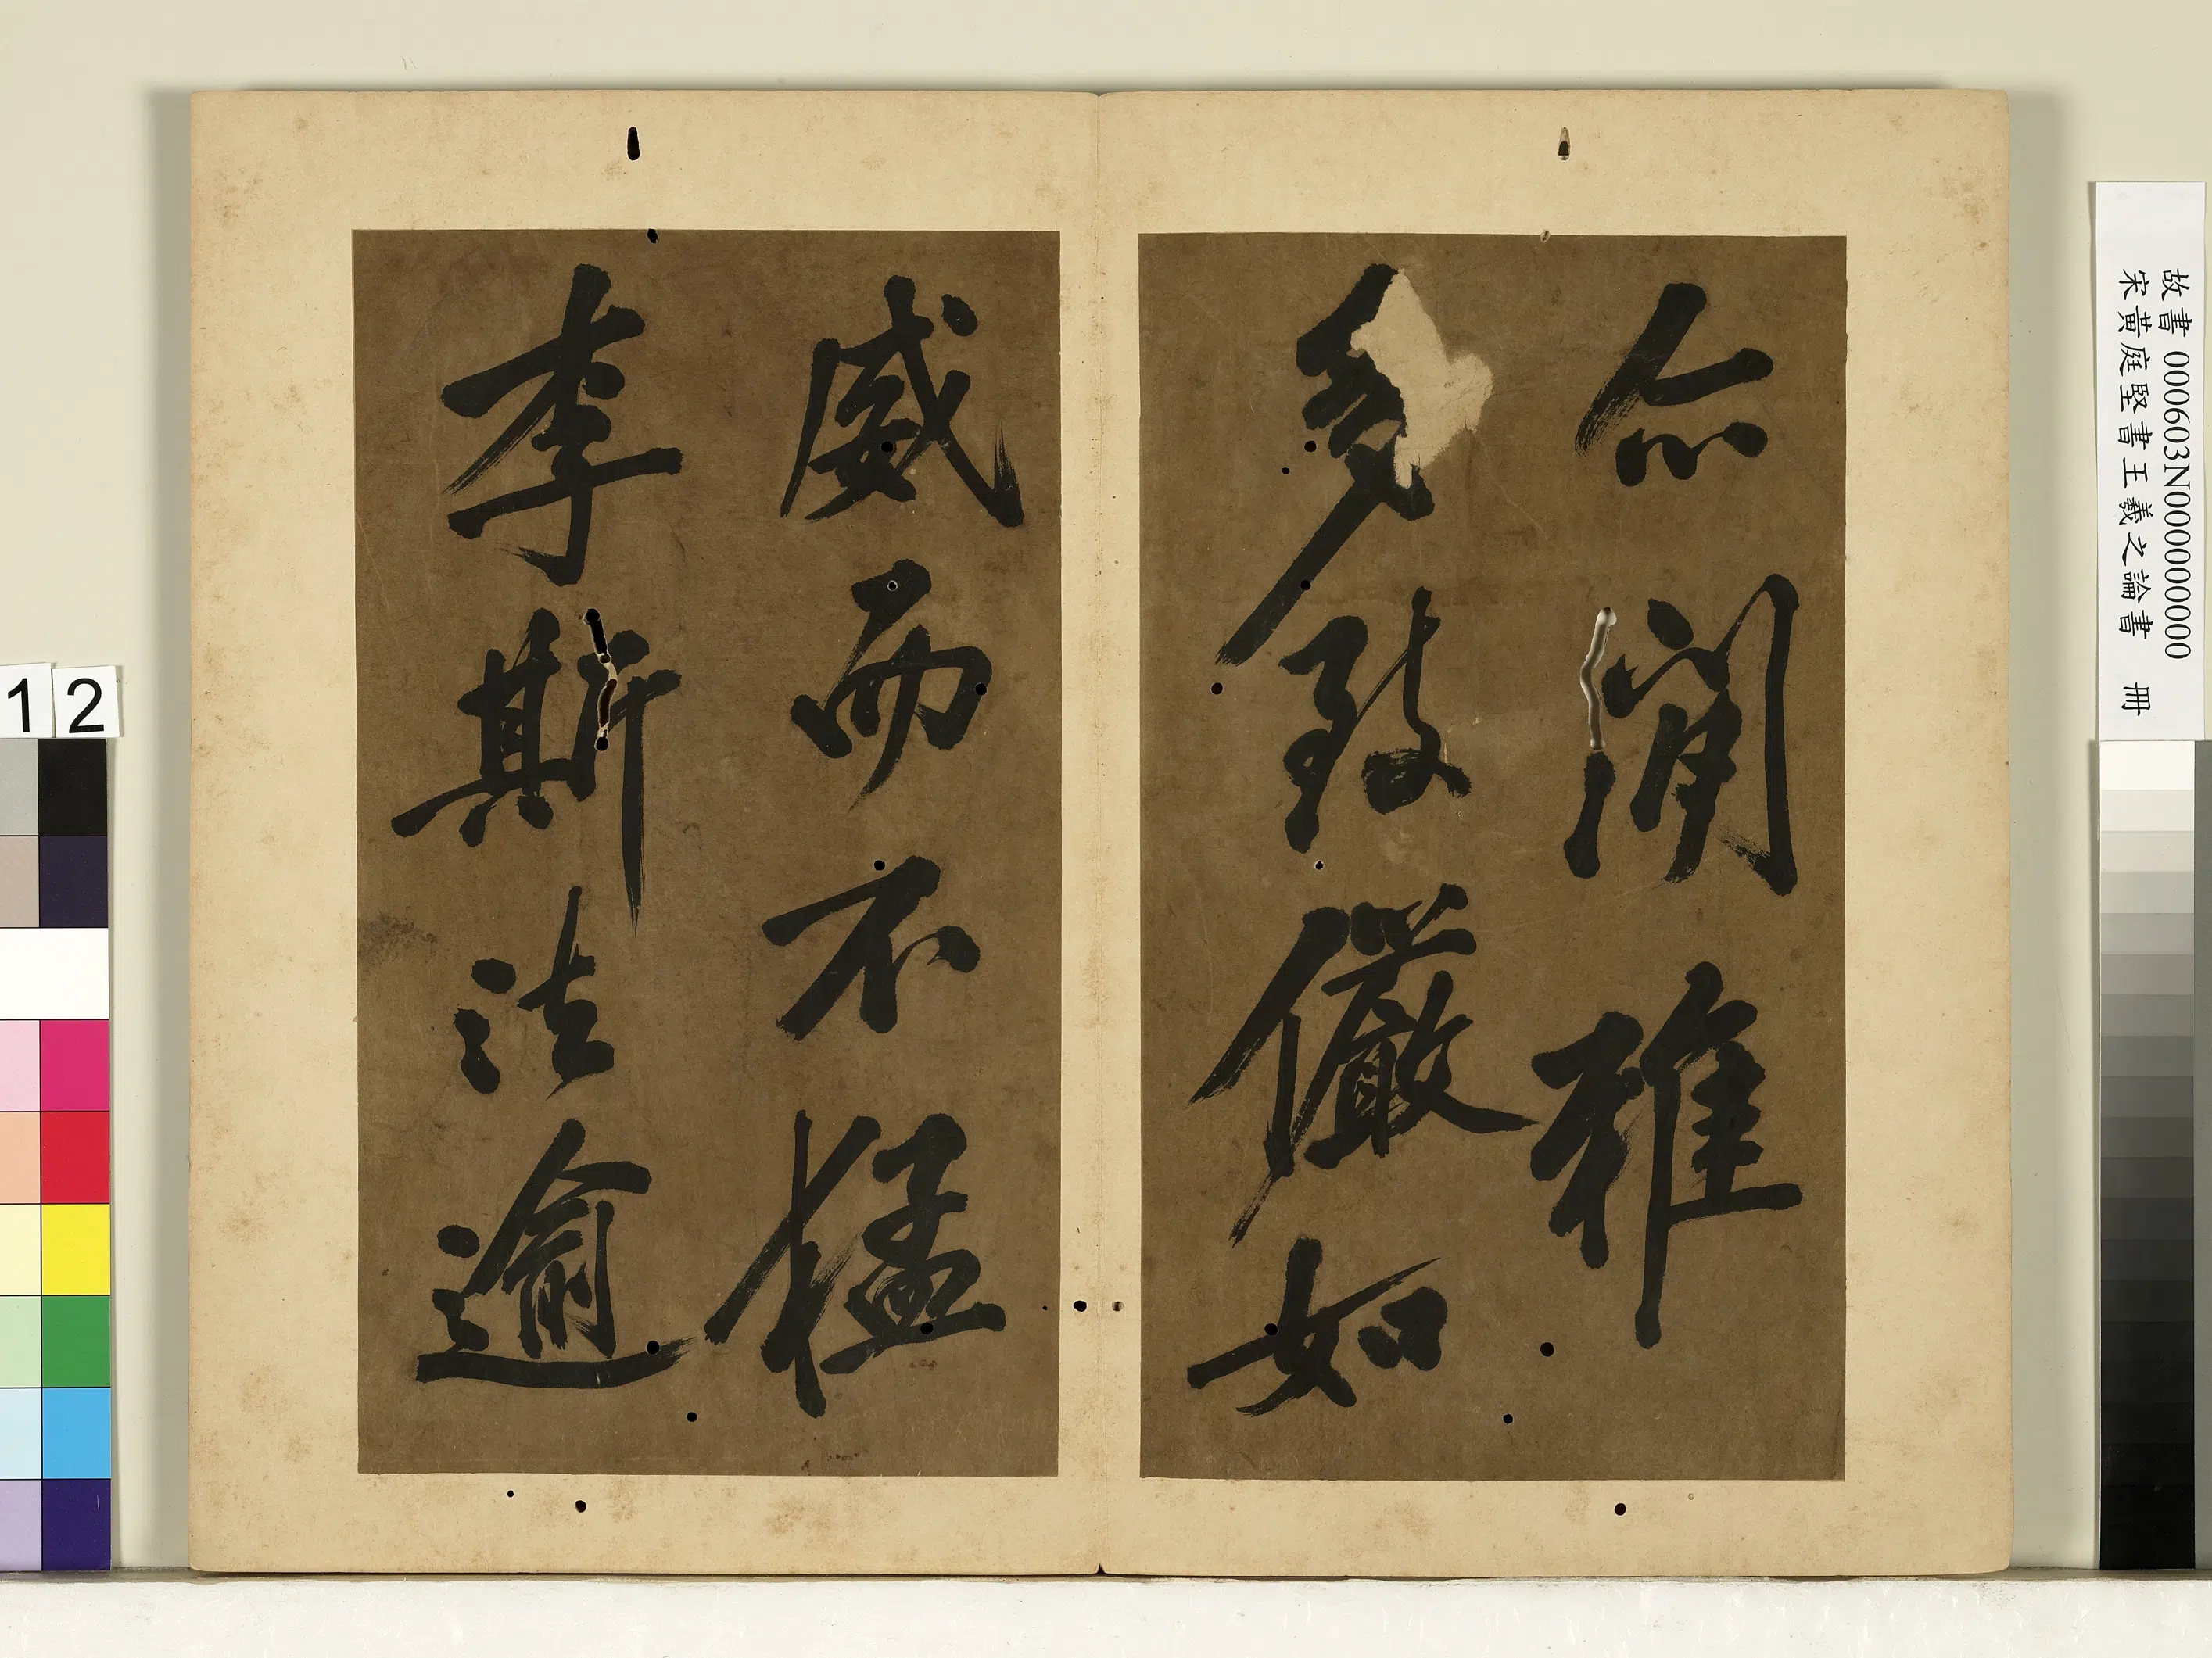 故書 000603N000000000
宋黃庭堅書王羲之論書 冊
尒閒雅
多致儼如
威而不猛
李斯法逾
12